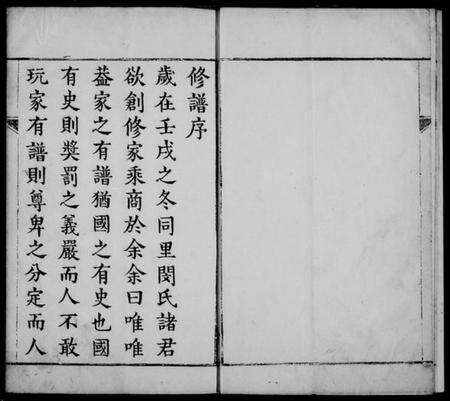 修譜序
歲在壬戌之冬同里閔氏諸君
欲創修家乘商於余余曰唯唯
葢家之有譜猶國之有史也國
有史則獎罰之義嚴而人不敢
玩家有譜則尊卑之分定而人